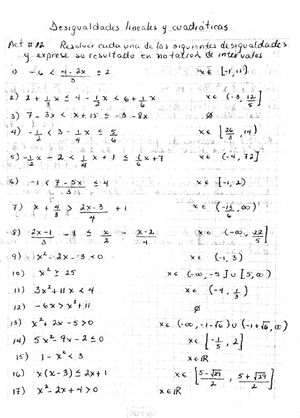 Desigualdades lineales y cuadráticas
Act #12 Resolver cada una de las siguientes desigualdades
y exprese su resultado en notación de intervalos
1) -6 < (4-2x)/3 ≤ 2 x ∈ [-1, 11)
2) 2 + 1/3 x ≤ 4 - 1/2 x < 6 + 1/6 x x ∈ (-3, 12/5]
3) 7-3x < x+15 ≤ -3-8x ∅
4) -1/2 < 3 - 1/4 x ≤ 5/6 x ∈ [26/3, 14)
5) -1/2 x - 2 < 1/4 x + 1 ≤ 1/6 x + 7 x ∈ (-4, 72]
6) -1 < (7-5x)/3 ≤ 4 x ∈ [-1, 2)
7) x + 4/3 > (2x-3)/4 + 1 x ∈ (-13/6, ∞)
8) (2x-1)/3 - 1 ≤ x/2 - (x-2)/4 x ∈ (-∞, 22/5]
9) x² - 2x - 3 < 0 x ∈ (-1, 3)
10) x² ≥ 25 x ∈ (-∞, -5] ∪ [5, ∞)
11) 3x² + 11x < 4 x ∈ (-4, 1/3)
12) -6x > x² + 11 ∅
13) x² + 2x - 5 > 0 x ∈ (-∞, -1-√6) ∪ (-1+√6, ∞)
14) 5x² - 9x - 2 ≤ 0 x ∈ [-1/5, 2]
15) 1 - x² < 3 x ∈ ℝ
16) x(x-3) ≤ 2x+1 x ∈ [(5-√29)/2, (5+√29)/2]
17) x² - 2x + 4 > 0 x ∈ ℝ